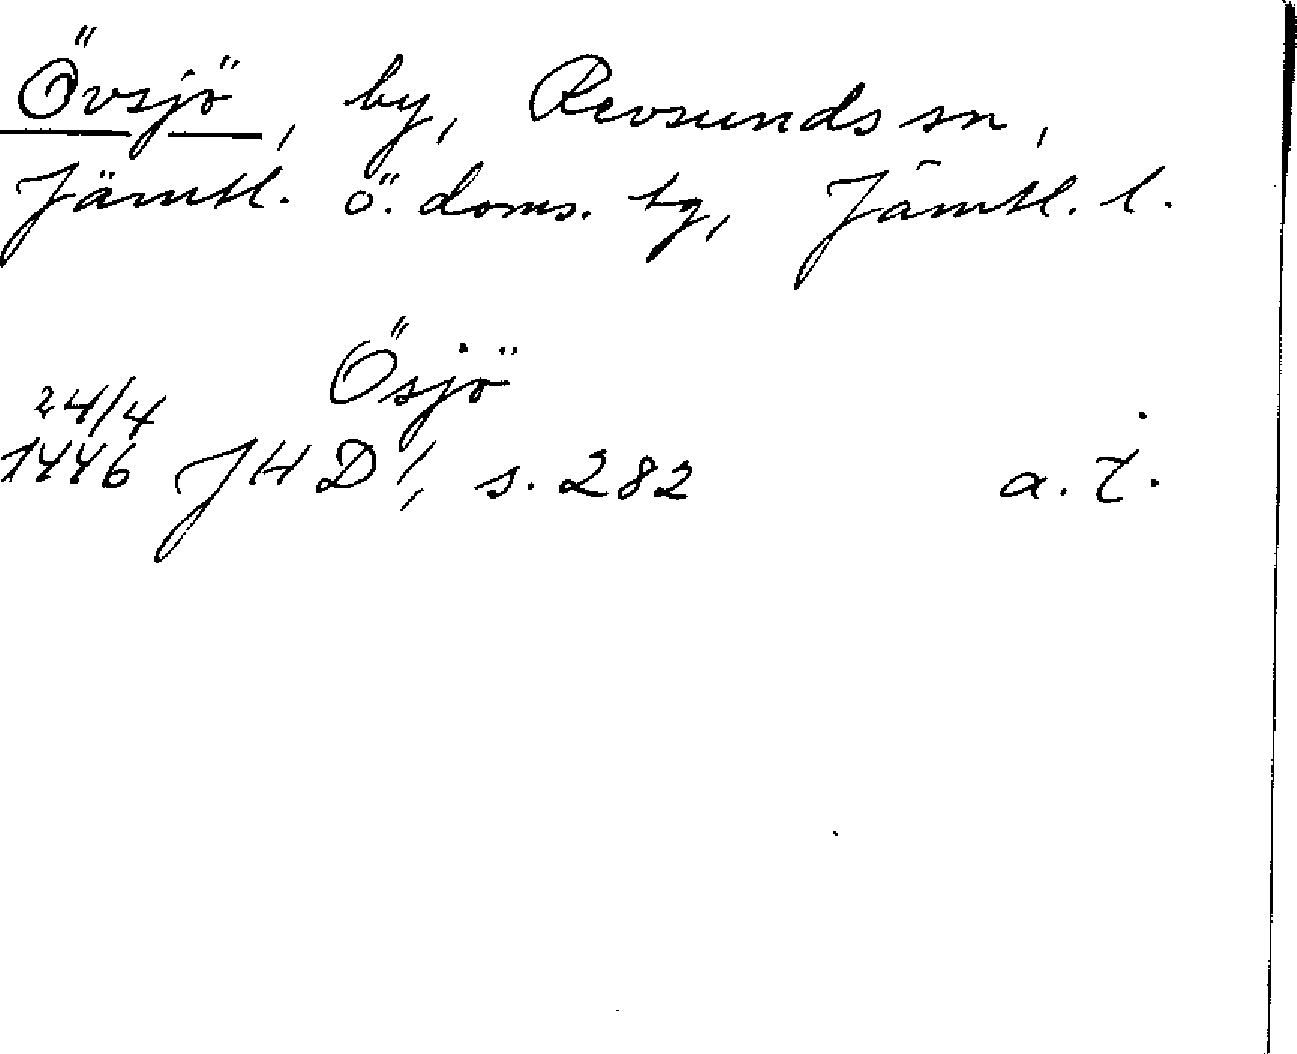 Övsjö, by, Revsunds sn,
Jämtl. ö. doms. tg, Jämtl. l.
Ösjö
24/4
1446 JHD 1, s. 282 a. i.